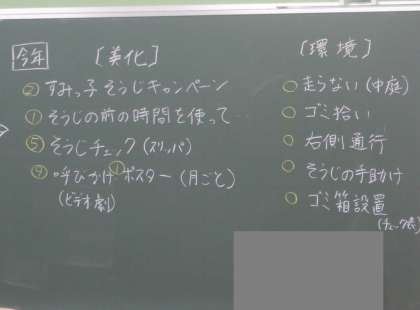 今年
[美化]
② すみっ子そうじキャンペーン
① そうじの前の時間を使って…
⑤ そうじチェック(スリッパ)
④ 呼びかけ① ポスター(月ごと)
(ビデオ劇)
[環境]
○ 走らない(中庭)
○ ゴミ拾い
○ 右側通行
○ そうじの手助け
○ ゴミ箱設置
(チェック表)